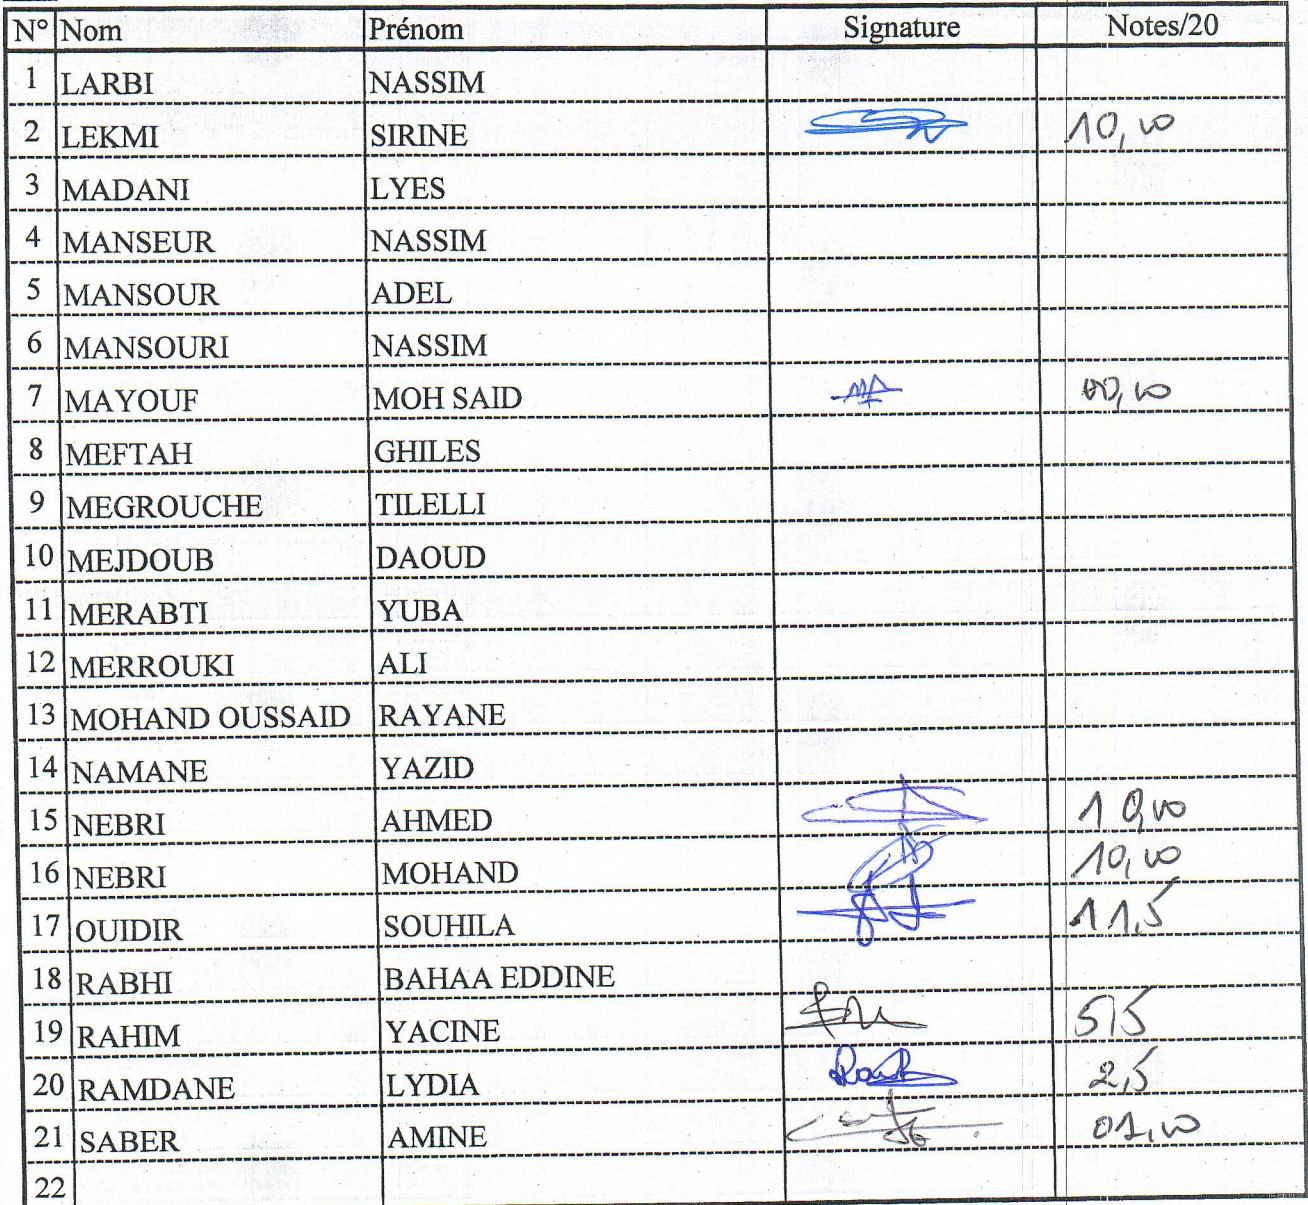 N° Nom Prénom Signature Notes/20
1 LARBI NASSIM
2 LEKMI SIRINE 10,00
3 MADANI LYES
4 MANSEUR NASSIM
5 MANSOUR ADEL
6 MANSOURI NASSIM
7 MAYOUF MOH SAID 00,00
8 MEFTAH GHILES
9 MEGROUCHE TILELLI
10 MEJDOUB DAOUD
11 MERABTI YUBA
12 MERROUKI ALI
13 MOHAND OUSSAID RAYANE
14 NAMANE YAZID
15 NEBRI AHMED 10,00
16 NEBRI MOHAND 10,00
17 OUIDIR SOUHILA 11,5
18 RABHI BAHAA EDDINE
19 RAHIM YACINE 5,5
20 RAMDANE LYDIA 2,5
21 SABER AMINE 01,00
22